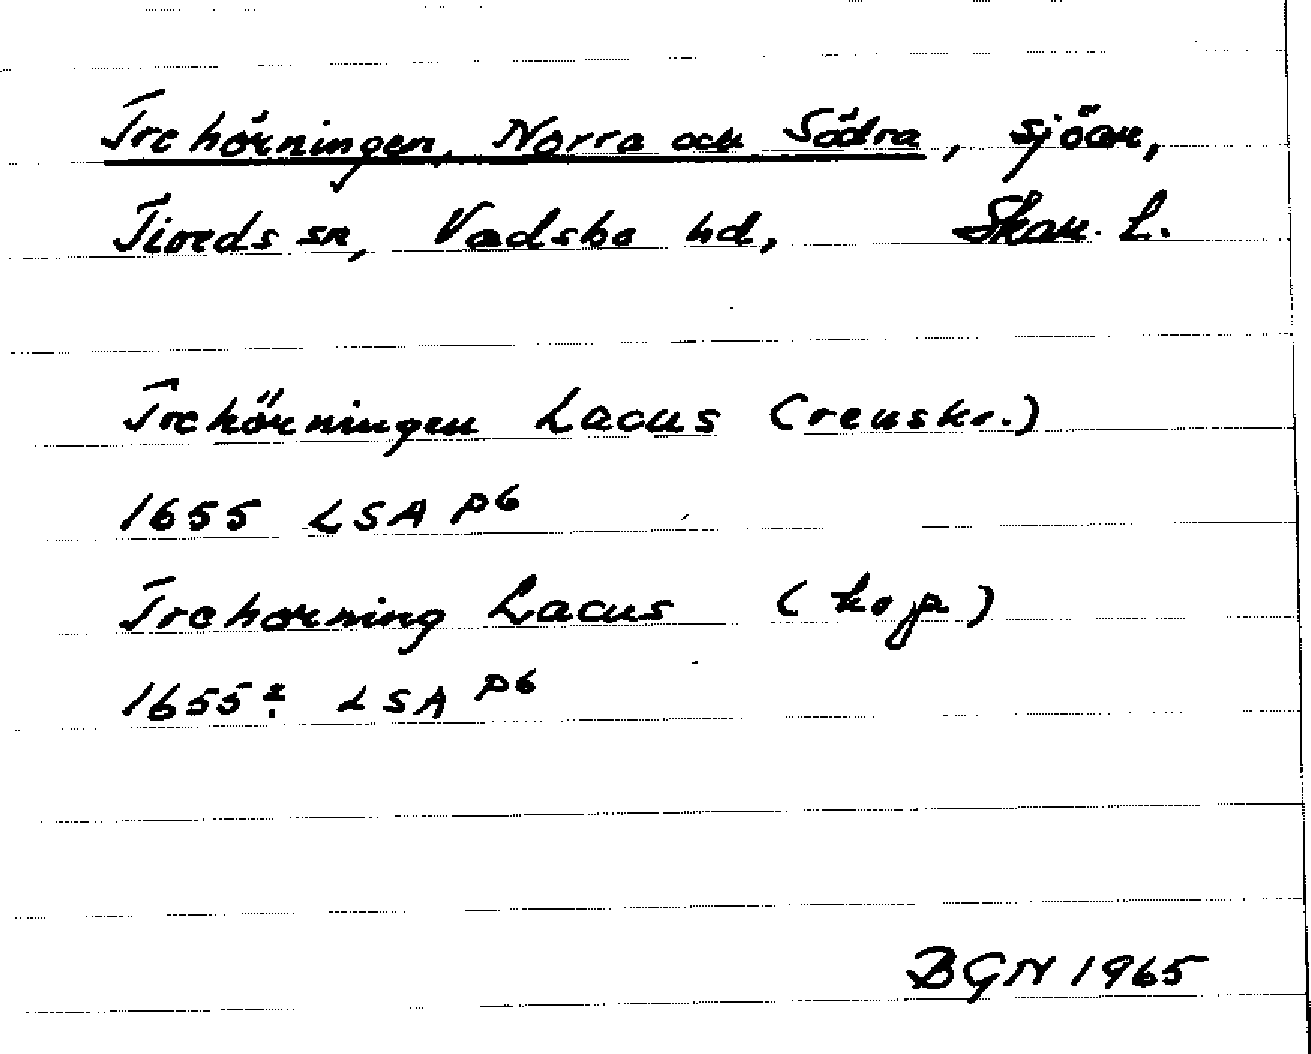 Trehörningen, Norra och Södra, sjöar,
Tiveds sn, Vadsbo hd, Skar. L.
Trehörningen Lacus (renskr.)
1655 LSA P6
Trehorning Lacus (kop)
1655? LSA P6
BGN 1965